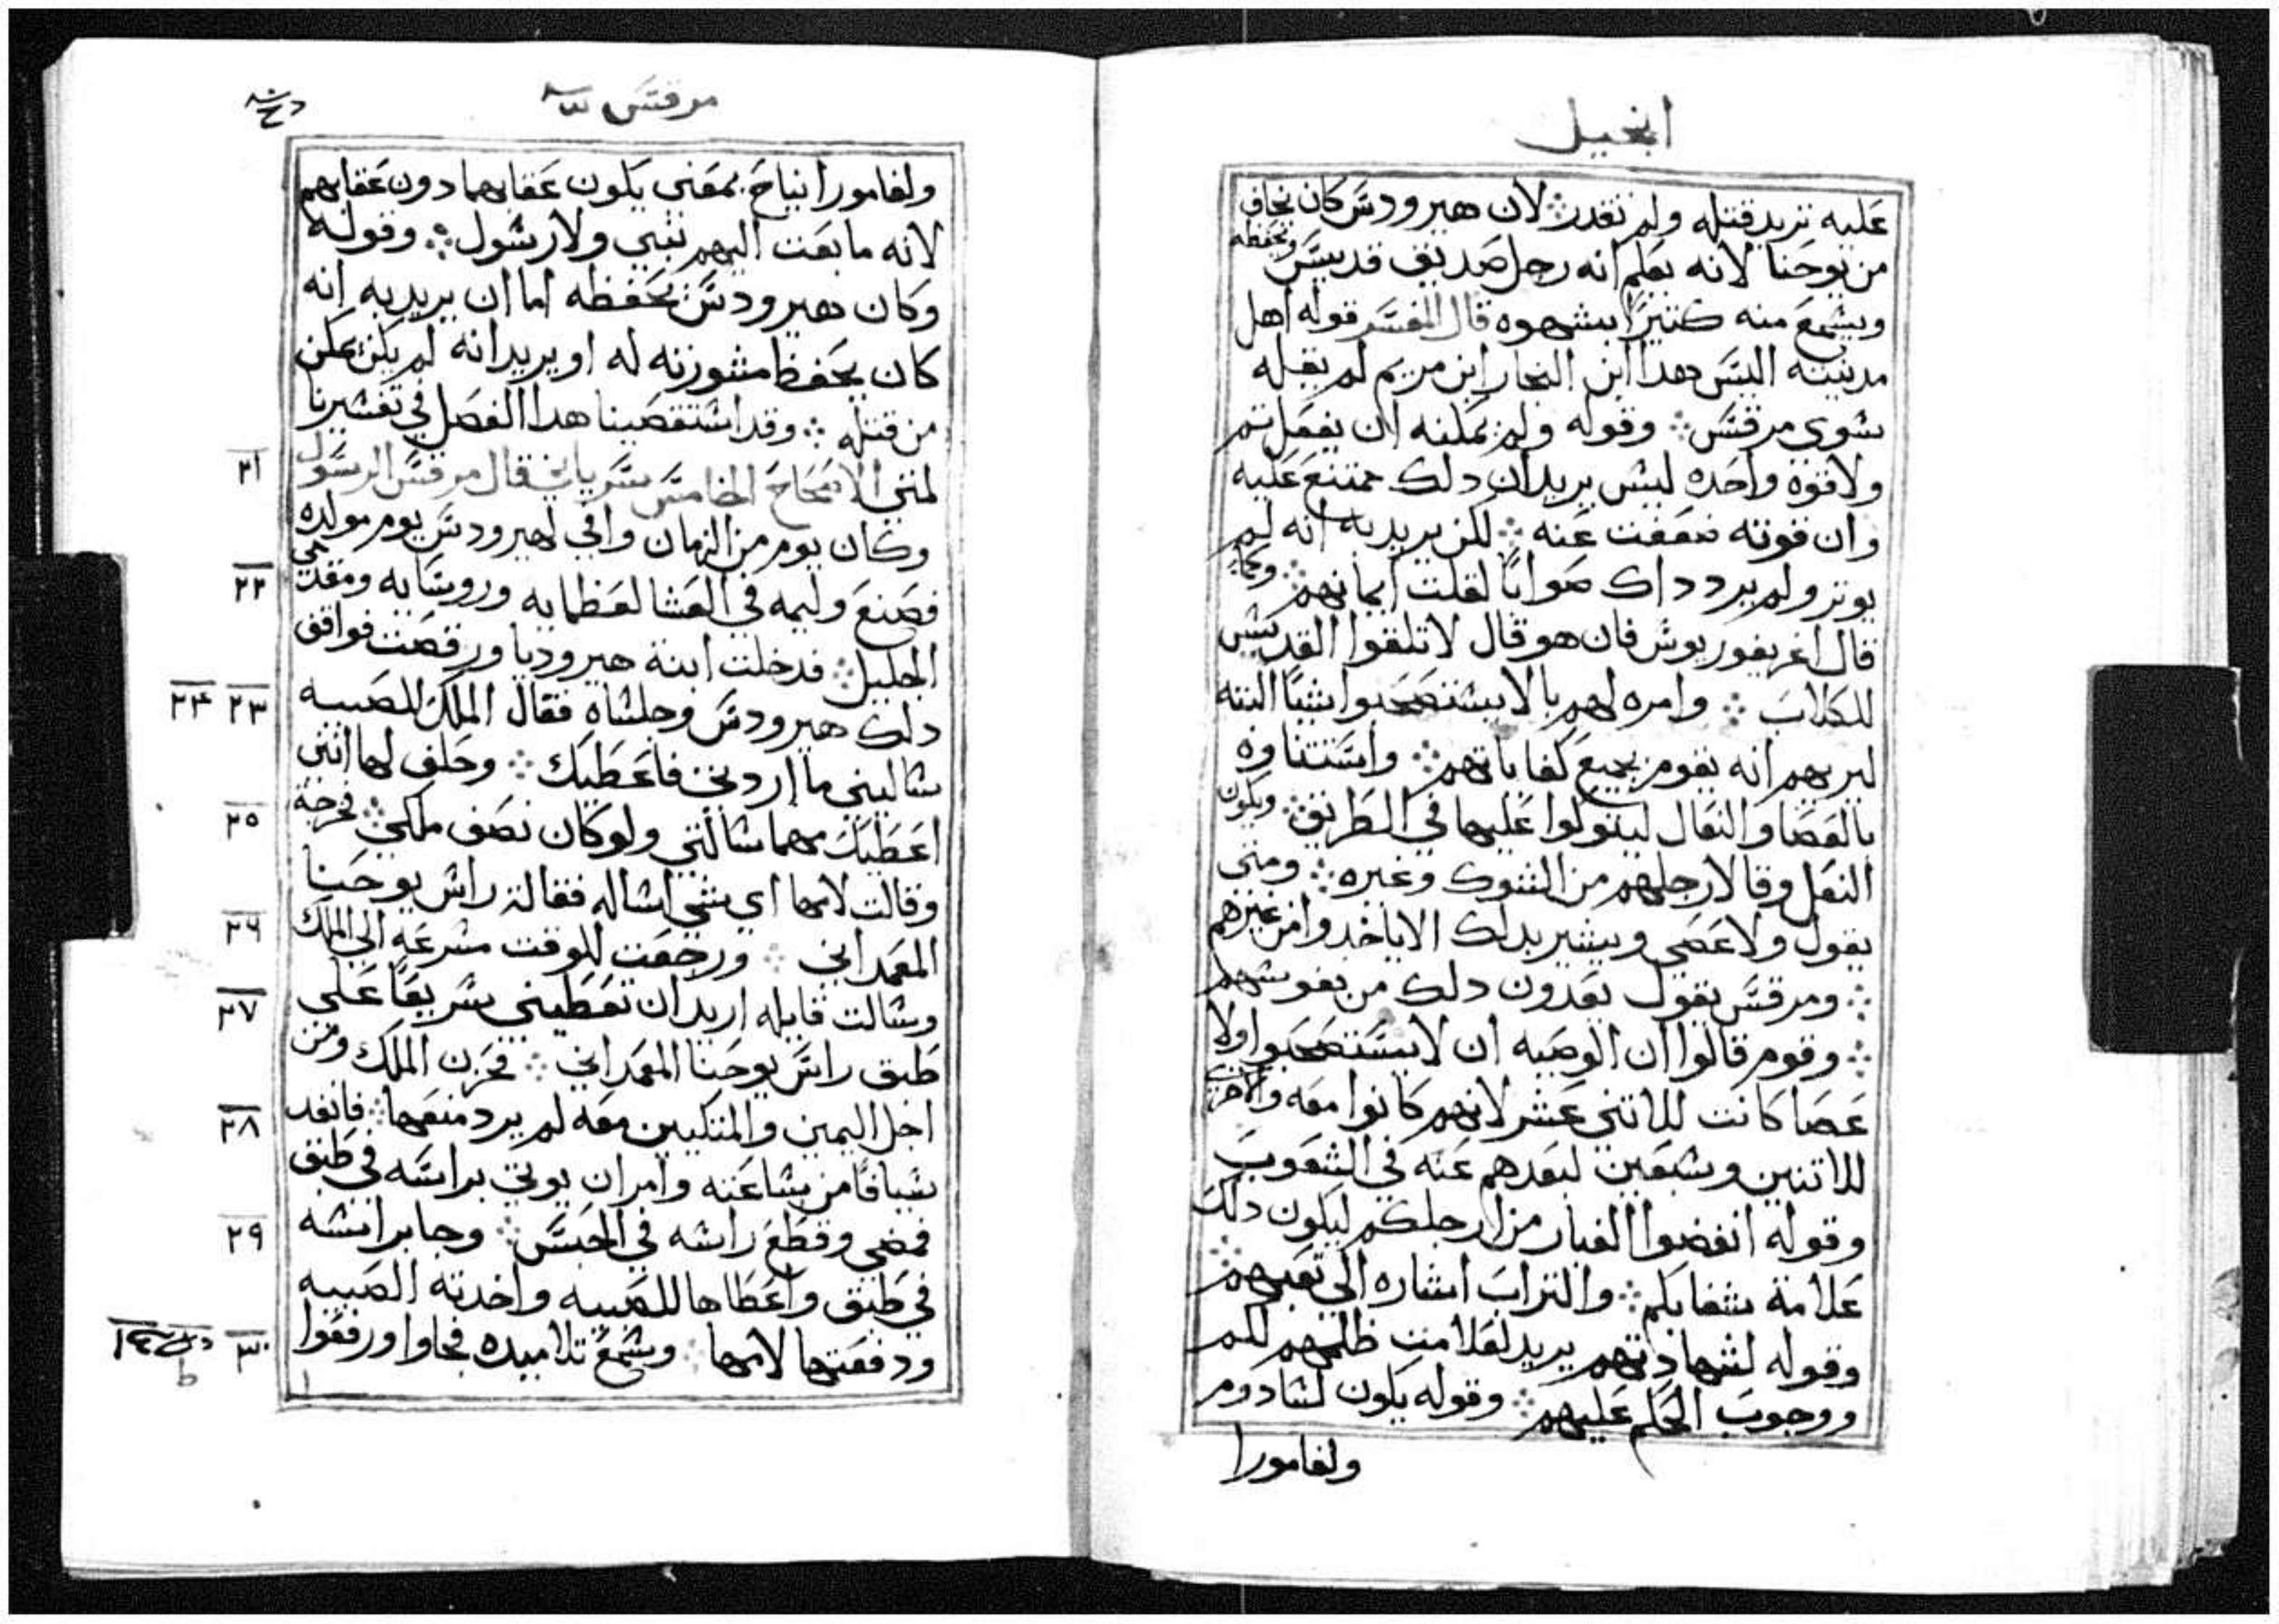 انجيل
عليه تريد قتله ولم تقدر ⁘ لان هيرودس كان يخاف
من يوحنا لانه يعلم انه رجل صديق قديس ويحفظه
ويشمع منه كثيرا بشهوه قال المفسر قوله اهل
مدينته اليس هدا ابن النجار ابن مريم لم يقله
شوى مرقس ⁘ وقوله ولم يمكنه ان يفعل تم
ولا قوة واحده ليس يريد ان دلك ممتنع عليه
وان قوته ضعفت عنه ⁘ لكن يريد به انه لم
يوتر ولم يرد داك صوابا لقلت ايمانهم ⁘ وكما
قال اغريغوريوش فان هو قال لا تلقوا القديش
للكلاب ⁘ وامره لهم بالا يستصحبوا شيا البته
ليريهم انه يقوم بجميع كفاياتهم ⁘ واستتناوه
بالعصا والنعال ليتوكوا عليها في الطريق ⁘ ويكون
النعل وقا لارجلهم من الشوك وغيره ⁘ ومتى
يقول ولا عصى ويشير بدلك الا ياخدوا من غيرهم
⁘ ومرقس يقول يعدون دلك من نفوشهم
⁘ وقوم قالوا ان الوصيه ان لا يستصحبوا اولا
عصا كانت للاتنى عشر لانهم كانوا معه والاخرى
للاتنين وشبعين لبعدهم عنه في الشعوب
وقوله انفضوا الغبار من ارجلكم ليكون دلك
علامة شقايكم ⁘ والتراب اشاره الى تعبهم ⁘
وقوله لشهادتهم يريد لعلامت ظلمهم لكم
ووجوب الحكم عليهم ⁘ وقوله يكون لشادوم
ولغامورا
مرقس
ولغامورا نياح بمعنى يكون عقابهما دون عقابهم
لانه ما بعت اليهم نبي ولا رشول ⁘ وقوله
وكان هيرودس يحفظه اما ان يريد به انه
كان يحفظ مشورته له او يريد انه لم يكن يمكن
من قتله ⁘ وقد اشتقصينا هدا الفصل في تفشيرنا
٢١ لمتى الاصحاح الخامس قال مرقس الرسول
وكان يوم من الزمان وافي لهيرودس يوم مولده
٢٢ فصنع وليمه في العشا لعظمايه وروسايه ومقدمي
الجليل ⁘ فدخلت ابنة هيروديا ورقصت فوافق
٢٣ ٢٤ دلك هيرودس وجلشاه فقال الملك للصبيه
شاليني ما اردتي فاعطيك ⁘ وحلف لها انني
٢٥ اعطيك مهما شالتني ولو كان نصف ملكي ⁘ فخرجة
وقالت لامها اي شي اشاله فقالة راش يوحنا
٢٦ المعمداني ⁘ ورجعت للوقت مشرعه الى الملك
٢٧ وشالت قايله اريد ان تعطيني شريعا على
طبق راس يوحنا المعمداني ⁘ فحزن الملك ومن
٢٨ اجل اليمين والمتكيين معه لم يرد منعها ⁘ فانفد
شيافا من شاعته وامر ان يوتي براسه في طبق
٢٩ فمضى وقطع راشه في الحبس ⁘ وجا براشه
في طبق واعطاها للصبيه واخدته الصبيه
٣٠ ودفعتها لامها ⁘ وشمع تلاميده فجاوا ورفعوا